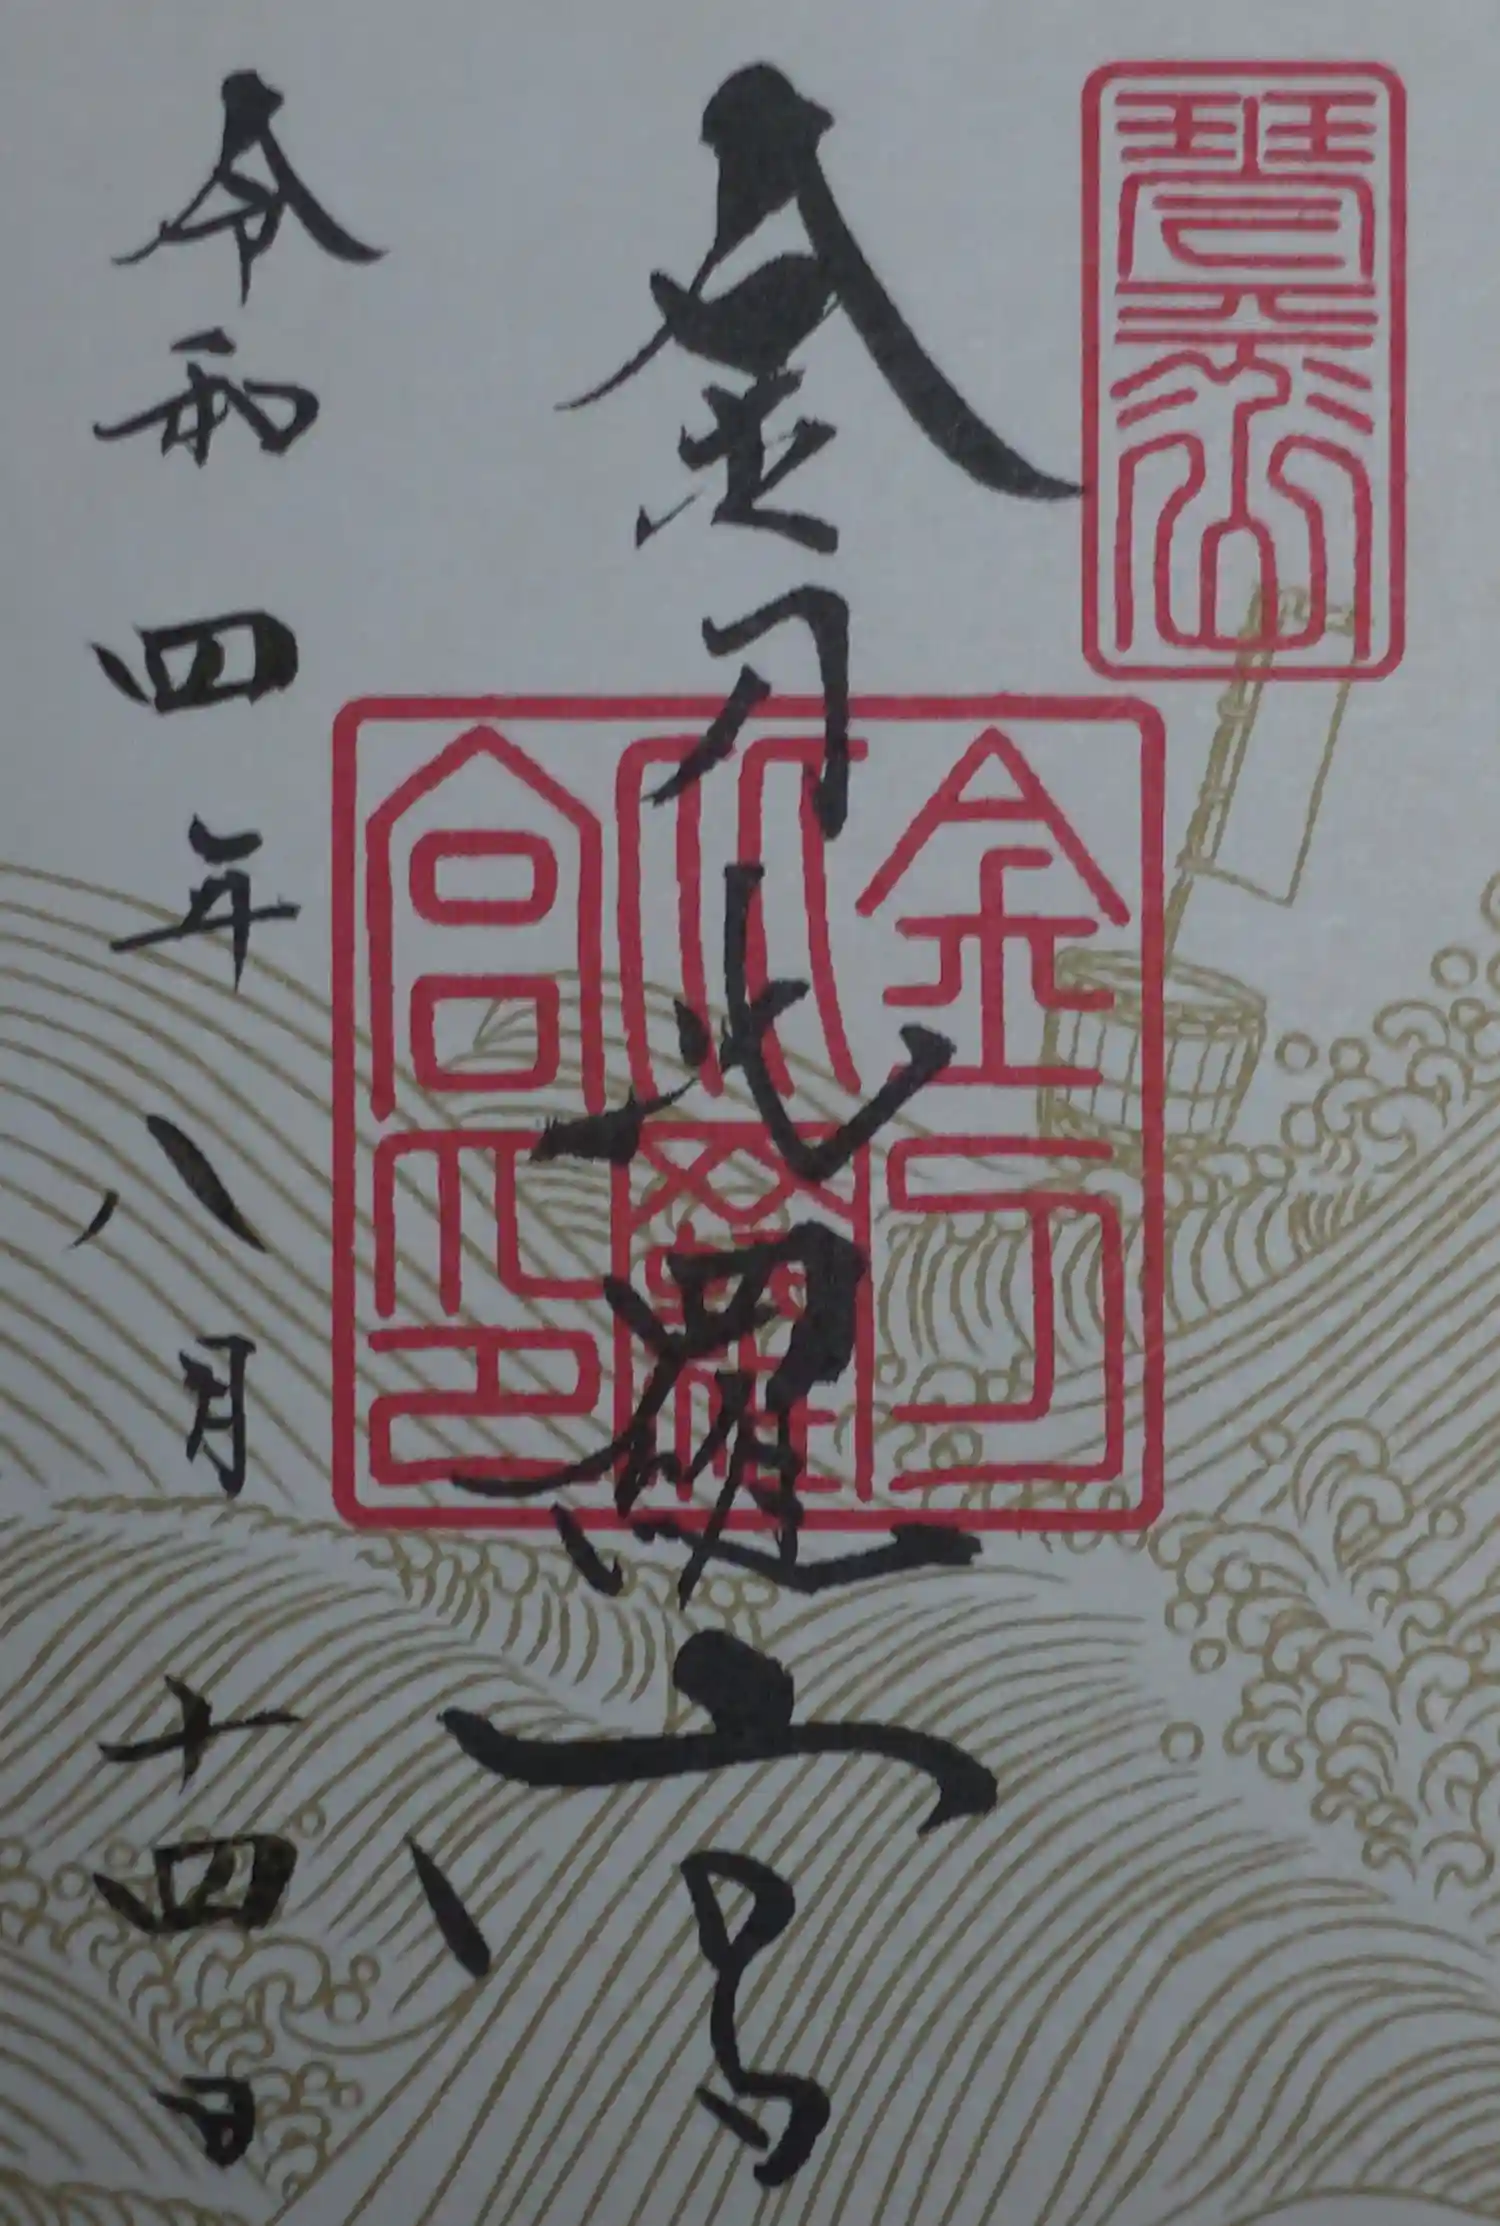 琴平山
金刀比羅宮
金刀
比羅
宮印
令和四年八月十四日